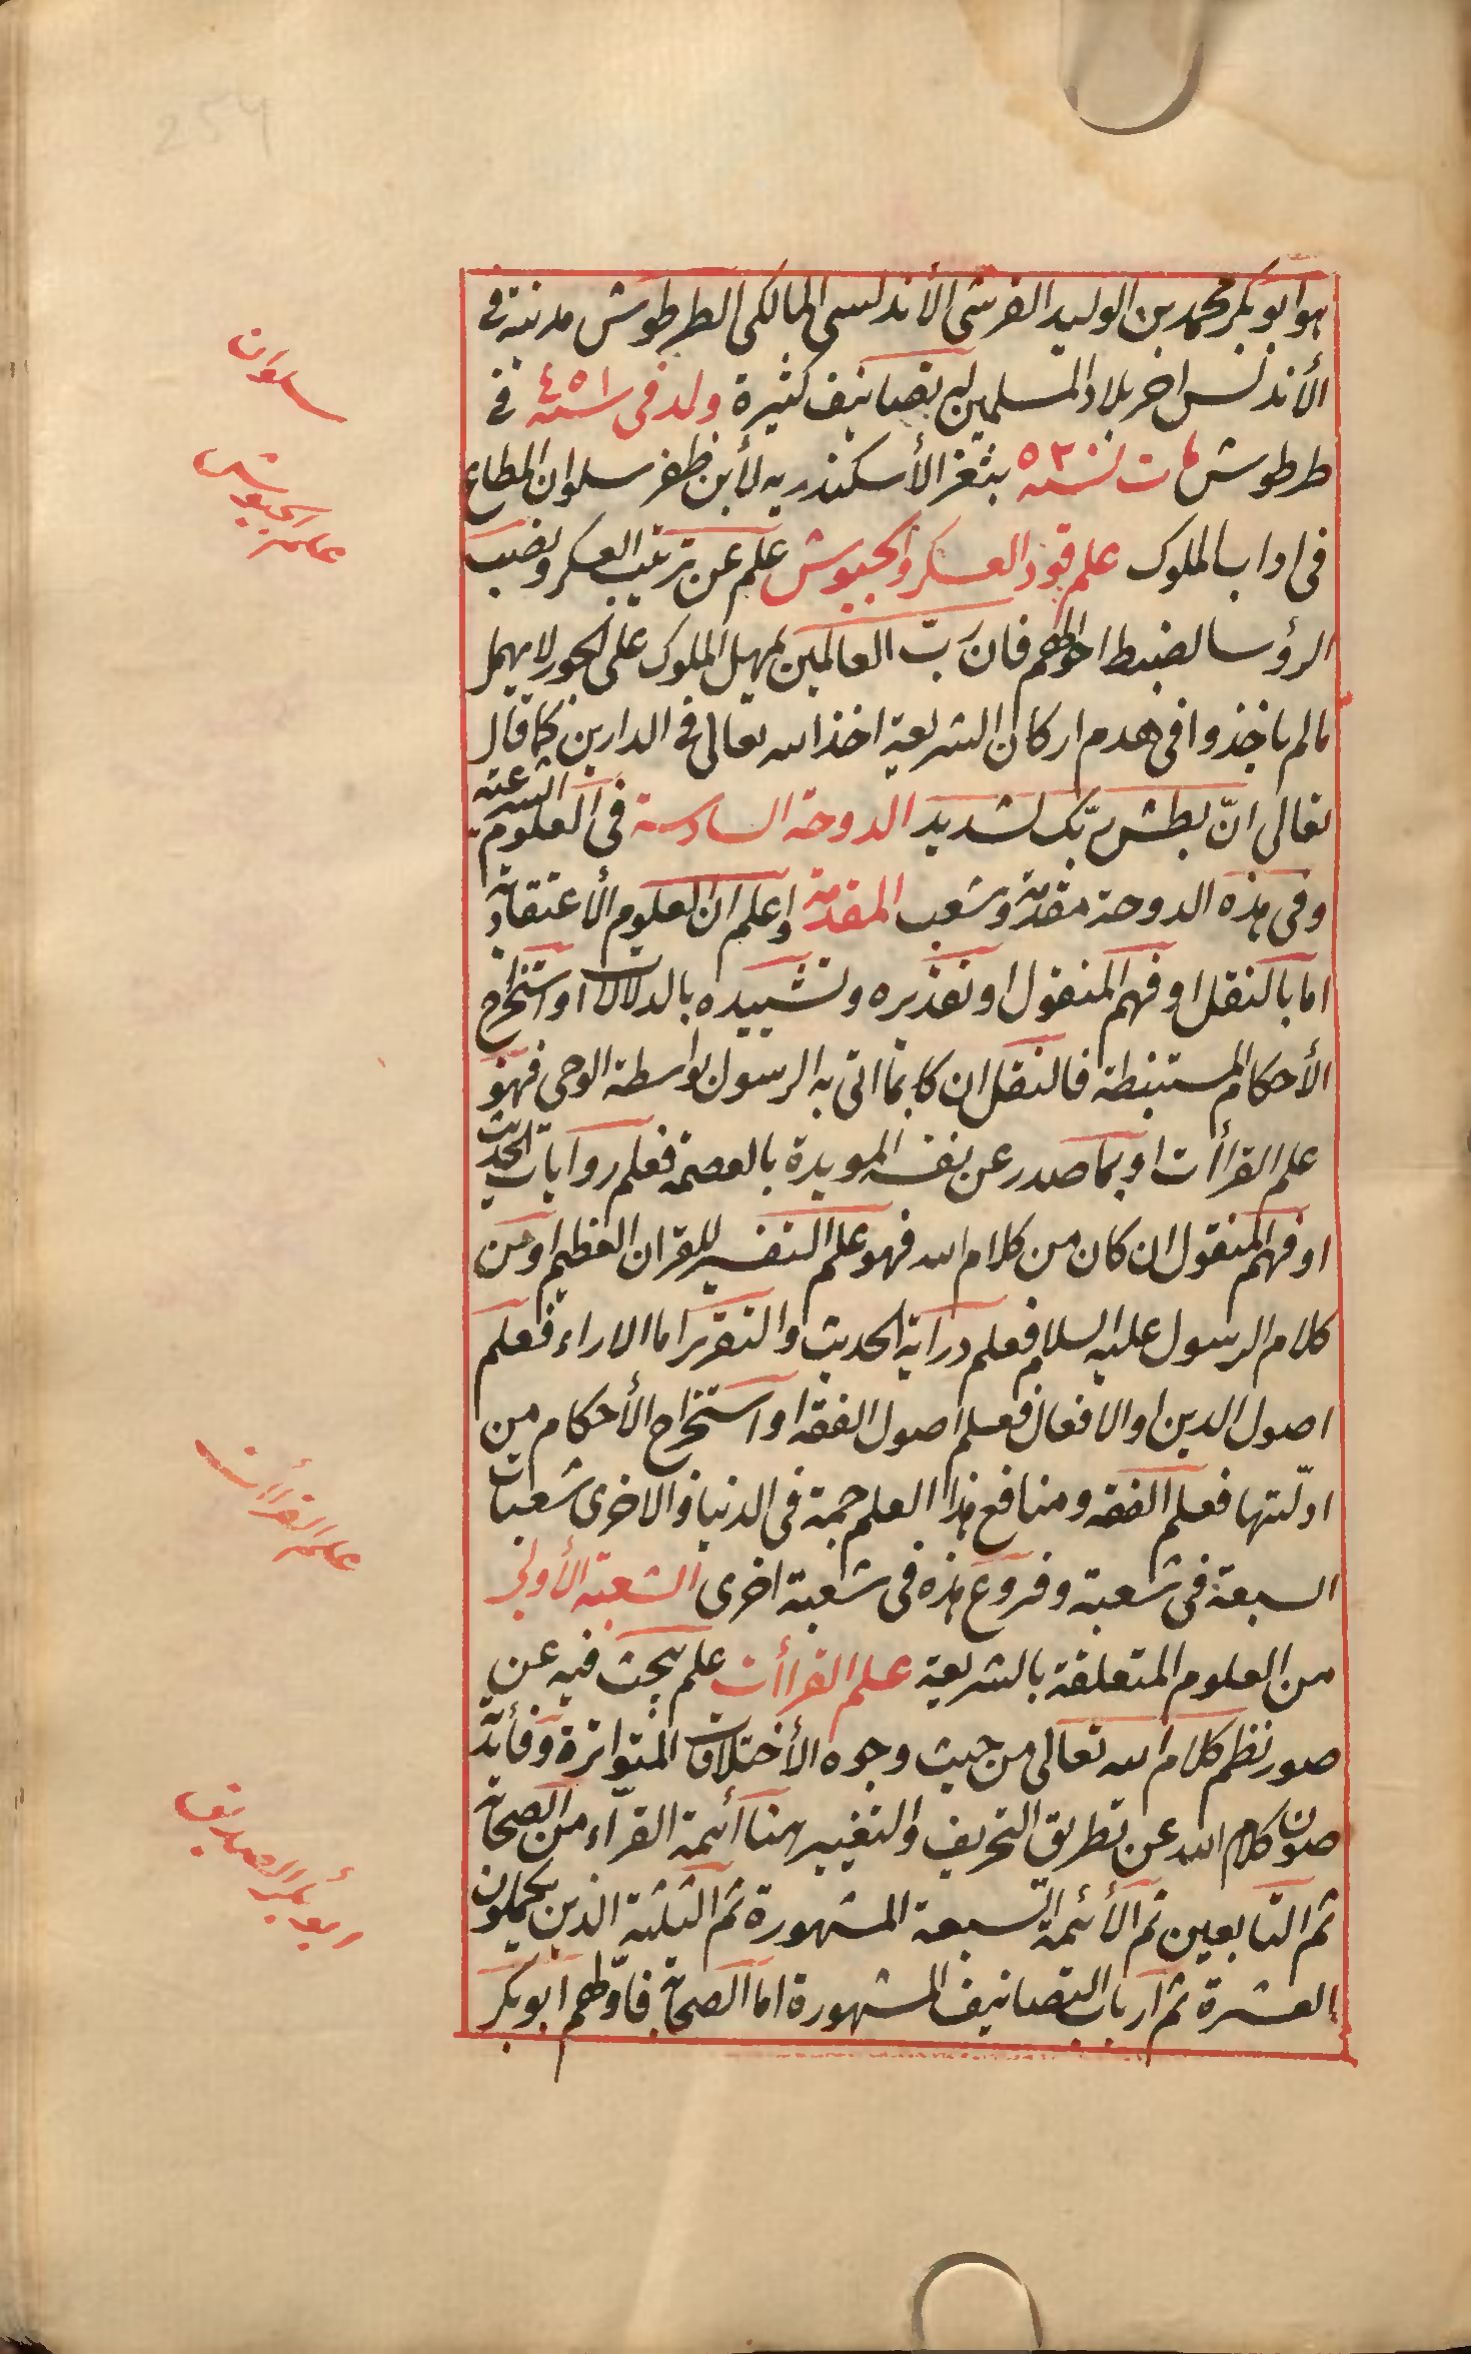 هو ابو بكر محمد بن الوليد القرشى الأندلسى المالكى الطرطوش مدينة فى
الأندلس اخر بلاد المسلمين له تصانيف كثيرة ولد فى سنة ٤٥١ فى
طرطوش مات سنة ٥٢٠ بثغر الأسكندريه لأبن ظفر سلوان المطاع
فى اداب الملوك علم قود العسكر والجيوش علم عن ترتيب العسكر ونصب
الرؤسا لضبط احوالهم فان ربّ العالمين يمهل الملوك على الجور لا يهمل
مالم ياخذوا فى هدم اركان الشريعة اخذ الله تعالى فى الدارين كما قال
تعالى انّ بطش ربّك لشديد الدوحة السادسة فى العلوم الشرعية
وفى هذه الدوحة مقدمة وشعب المقدمة واعلم ان العلوم الأعتقادية
اما بالنقل او فهم المنقول او تقديره وتشييده بالدلالات او استخراج
الأحكام المستنبطة فالنقل ان كان بما اتى به الرسول بواسطة الوحى فهو
علم القراأت او بما صدر عن نفسه المويدة بالعصمة فعلم روايات الحديث
او فهم المنقول ان كان من كلام الله فهو علم التفسير للقران العظيم او من
كلام الرسول عليه السلام فعلم دراية الحديث والتقرير اما الاراء فعلم
اصول الدين او الافعال فعلم اصول الفقه او استخراج الأحكام من
ادلّتها فعلم الفقه ومنافع هذا العلم جمة فى الدنيا والاخرى شعبات
السبعة فى شعبة وفروع هذه فى شعبة اخرى الشعبة الأولى
من العلوم المتعلقة بالشريعة علم القراأت علم يبحث فيه عن
صور نظم كلام الله تعالى من حيث وجوه الأختلافات المتواترة وفائدته
صون كلام الله عن تطريق التحريف والتغيير هنا أئمة القرّاء من الصحابة
ثم التابعين ثم الأئمة السبعة المشهورة ثم الثلثة الذين يكملون
العشرة ثم ارباب التصانيف المشهورة اما الصحابة فاولهم ابو بكر
سلوان
علم الجيوش
علم القراأت
ابو بكر الصديق
254